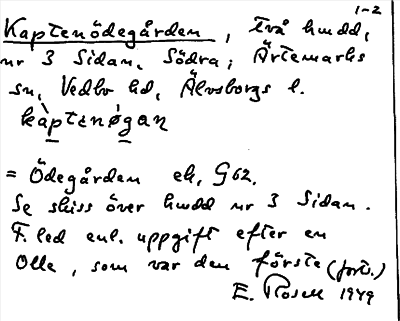 1-2
Kaptenödegården, två hmdd,
nr 3 Sidan, Södra; Ärtemarks
sn, Vedbo hd, Älvsborgs l.
kàptenø̀gan
= Ödegården ek, G62.
Se skiss över hmdd nr 3 Sidan.
F.led enl. uppgift efter en
Olle, som var den förste (forts.)
E. Rosell 1949